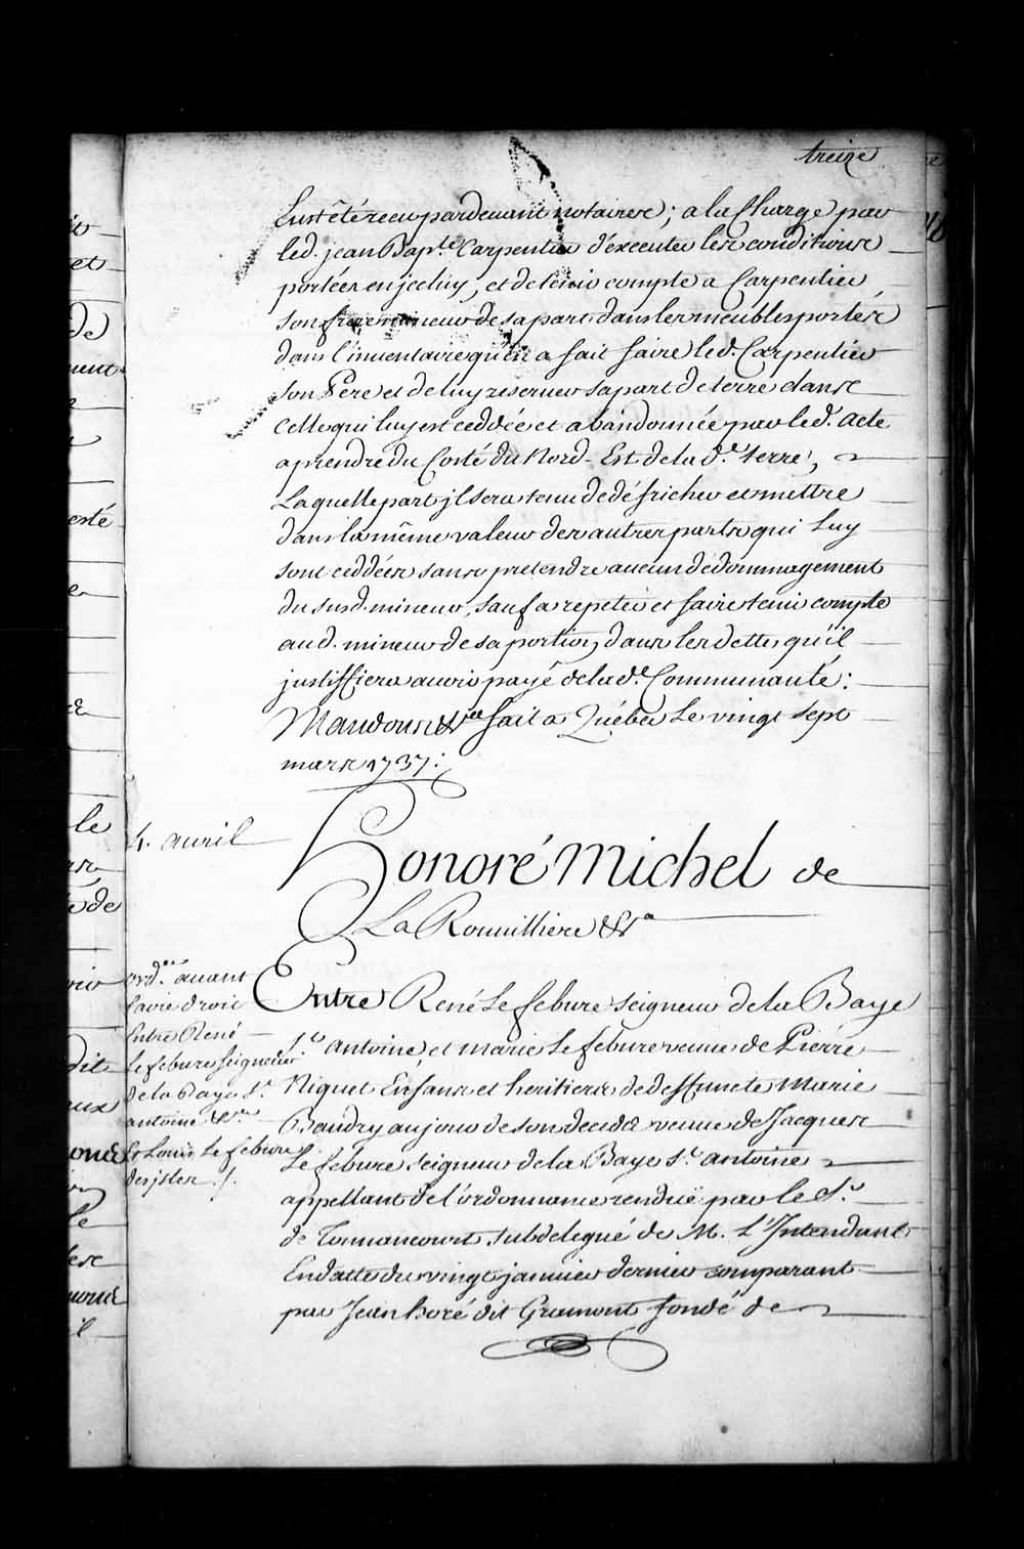 treize
Eust été receu pardevant notaires; a la Charge par
led. jean Bap.te Carpentier d'executer les conditions
portées en jceluy, et de tenir compte a Carpentier
son frere mineur de sa part dans les meubles portés
dans l'inventaire qu'en a fait faire led. Carpentier
son Pere et de luy reserver sa part de terre dans
Celle qui luy est ceddée et abandonnée par led. acte
a prendre du Costé du Nord-Est de lad.e terre;
Laquelle part jl sera tenu de défricher et mettre
dans la même valeur des autres parts qui luy
sont ceddées sans pretendre aucun dédommagement
du susd. mineur, sauf a repeter et faire tenir compte
aud. mineur de sa portion dans les dettes qu'il
justiffiera avoir payé de lad.e Communauté:
Mandons &ca fait a Québec Le vingt sept
mars 1737:
4. avril
Honoré Michel de
La Rouvilliere &ca
ord.ce avant
faire droit
Entre René
Le febvre Seigneur
de la Baye S.t
antoine &ca
Et Louis Le febvre
desjslets ./.
Entre René Le febvre seigneur de la Baye
S.t Antoine, et marie Le febvre veuve de Pierre
Niquet Enfans et heritiers de deffuncte Marie
Baudry au jour de son decéds veuve de Jacques
Le febvre seigneur de la Baye S.t antoine
appellant de l'ordonnance rendue par le S.r
de Tonnancourt subdelegué de M. L'Intendant
En datte du vingt janvier dernier comparant
par Jean horé dit Gramont fondé de